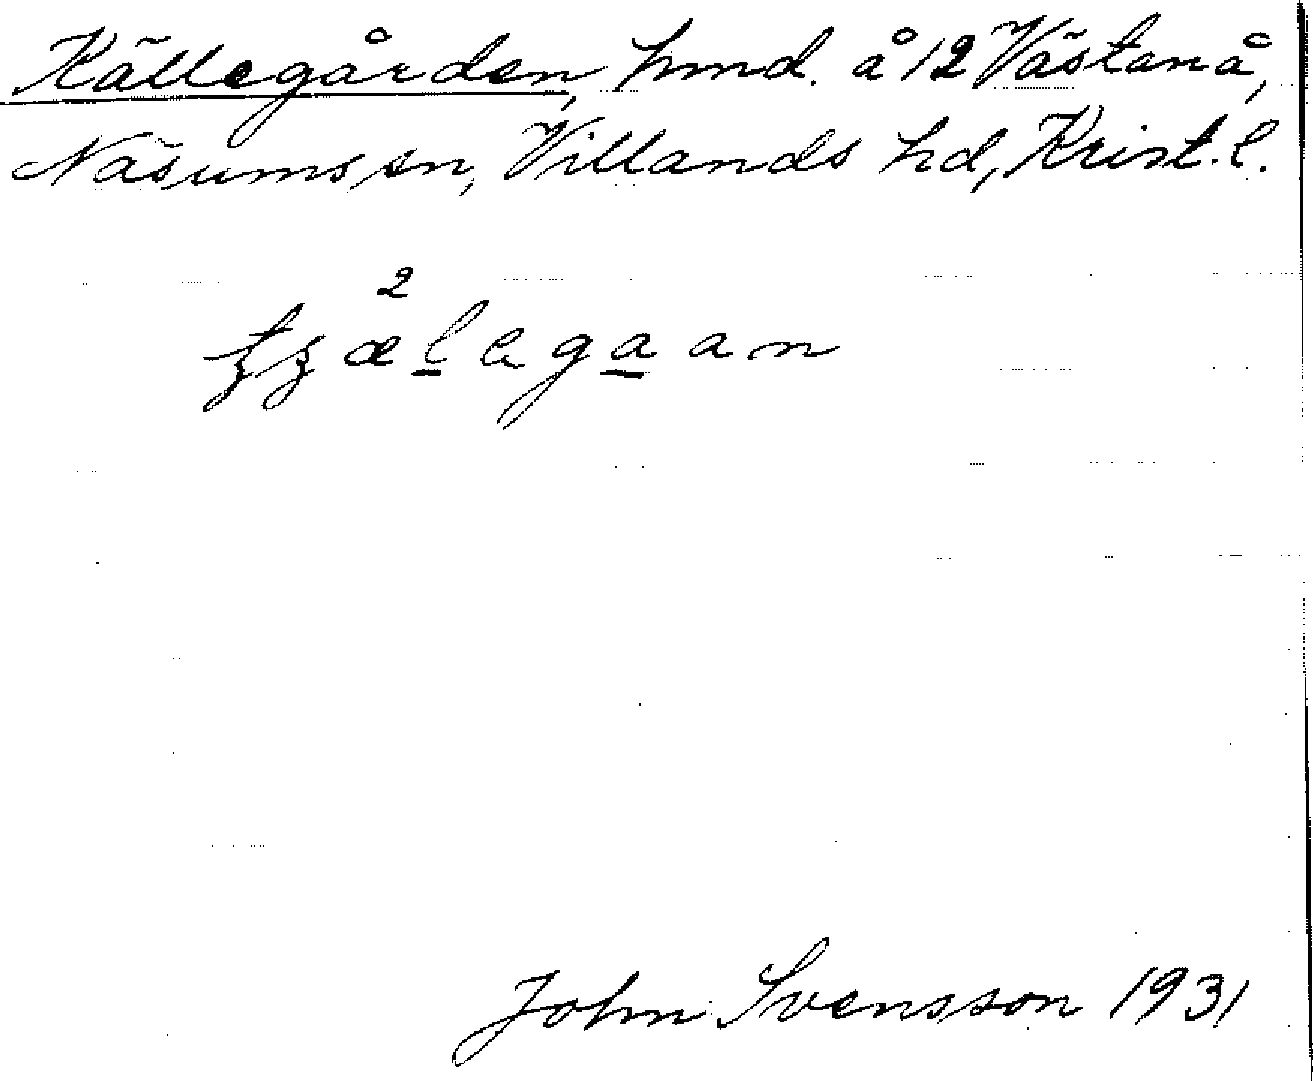 Källegården, hmd. å 12 Västanå,
Näsums sn, Villands hd, Krist. l.
2
John Svensson 1931